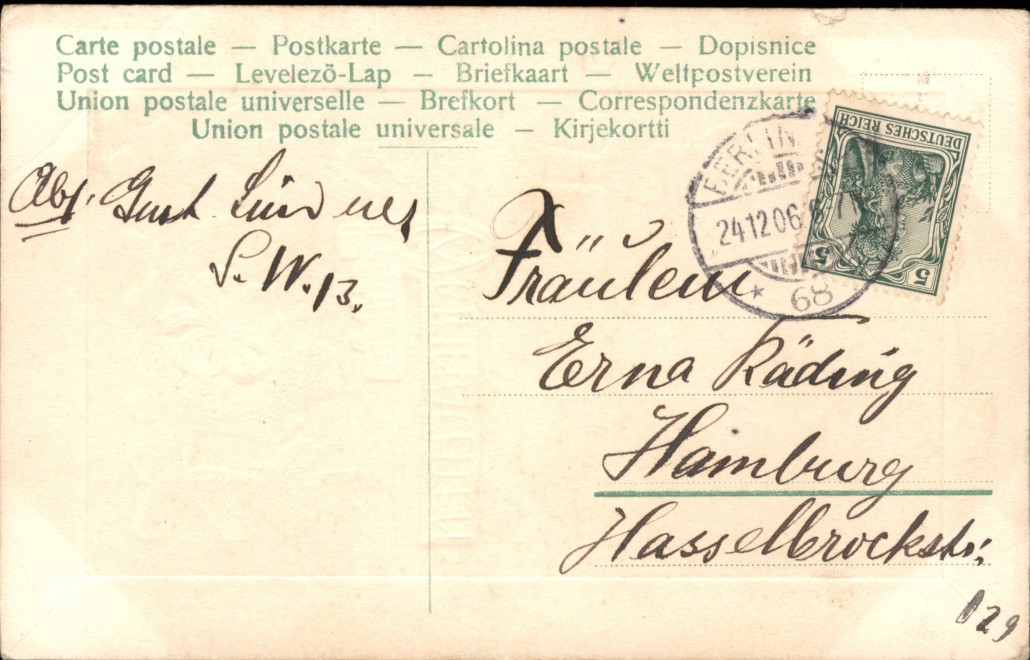 Carte postale — Postkarte — Cartolina postale — Dopisnice
Post card — Levelezö-Lap — Briefkaart — Weltpostverein
Union postale universelle — Brefkort — Correspondenzkarte
Union postale universale — Kirjekortti
DEUTSCHES REICH
5 5
BERLIN
24.12.06
* 68
Abs. Gust
S.W.13.
Fräulein
Erna Räding
Hamburg
Hasselbrockstr.
129